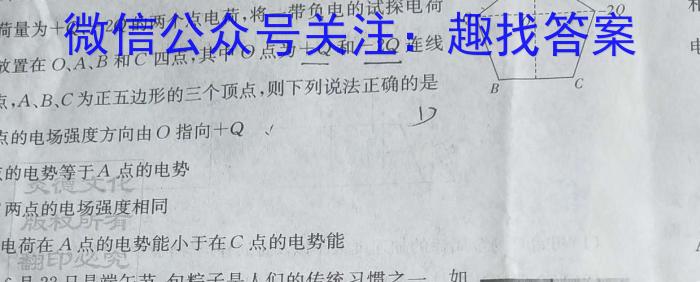 荷量为+Q、-2Q的两个点电荷,将一带负电的试探电荷
微信公众号关注:趣找答案
放置在O、A、B和C四点,其中O点为+Q和-2Q连线
-2Q
B
C
点,A、B、C为正五边形的三个顶点,则下列说法正确的是
D
点的电场强度方向由O指向+Q
点的电势等于A点的电势
炎德文化
两点的电场强度相同
版权所有
电荷在A点的电势能小于在C点的电势能
翻印必究
6月22日是端午节,包粽子是人们的传统习惯之一,如